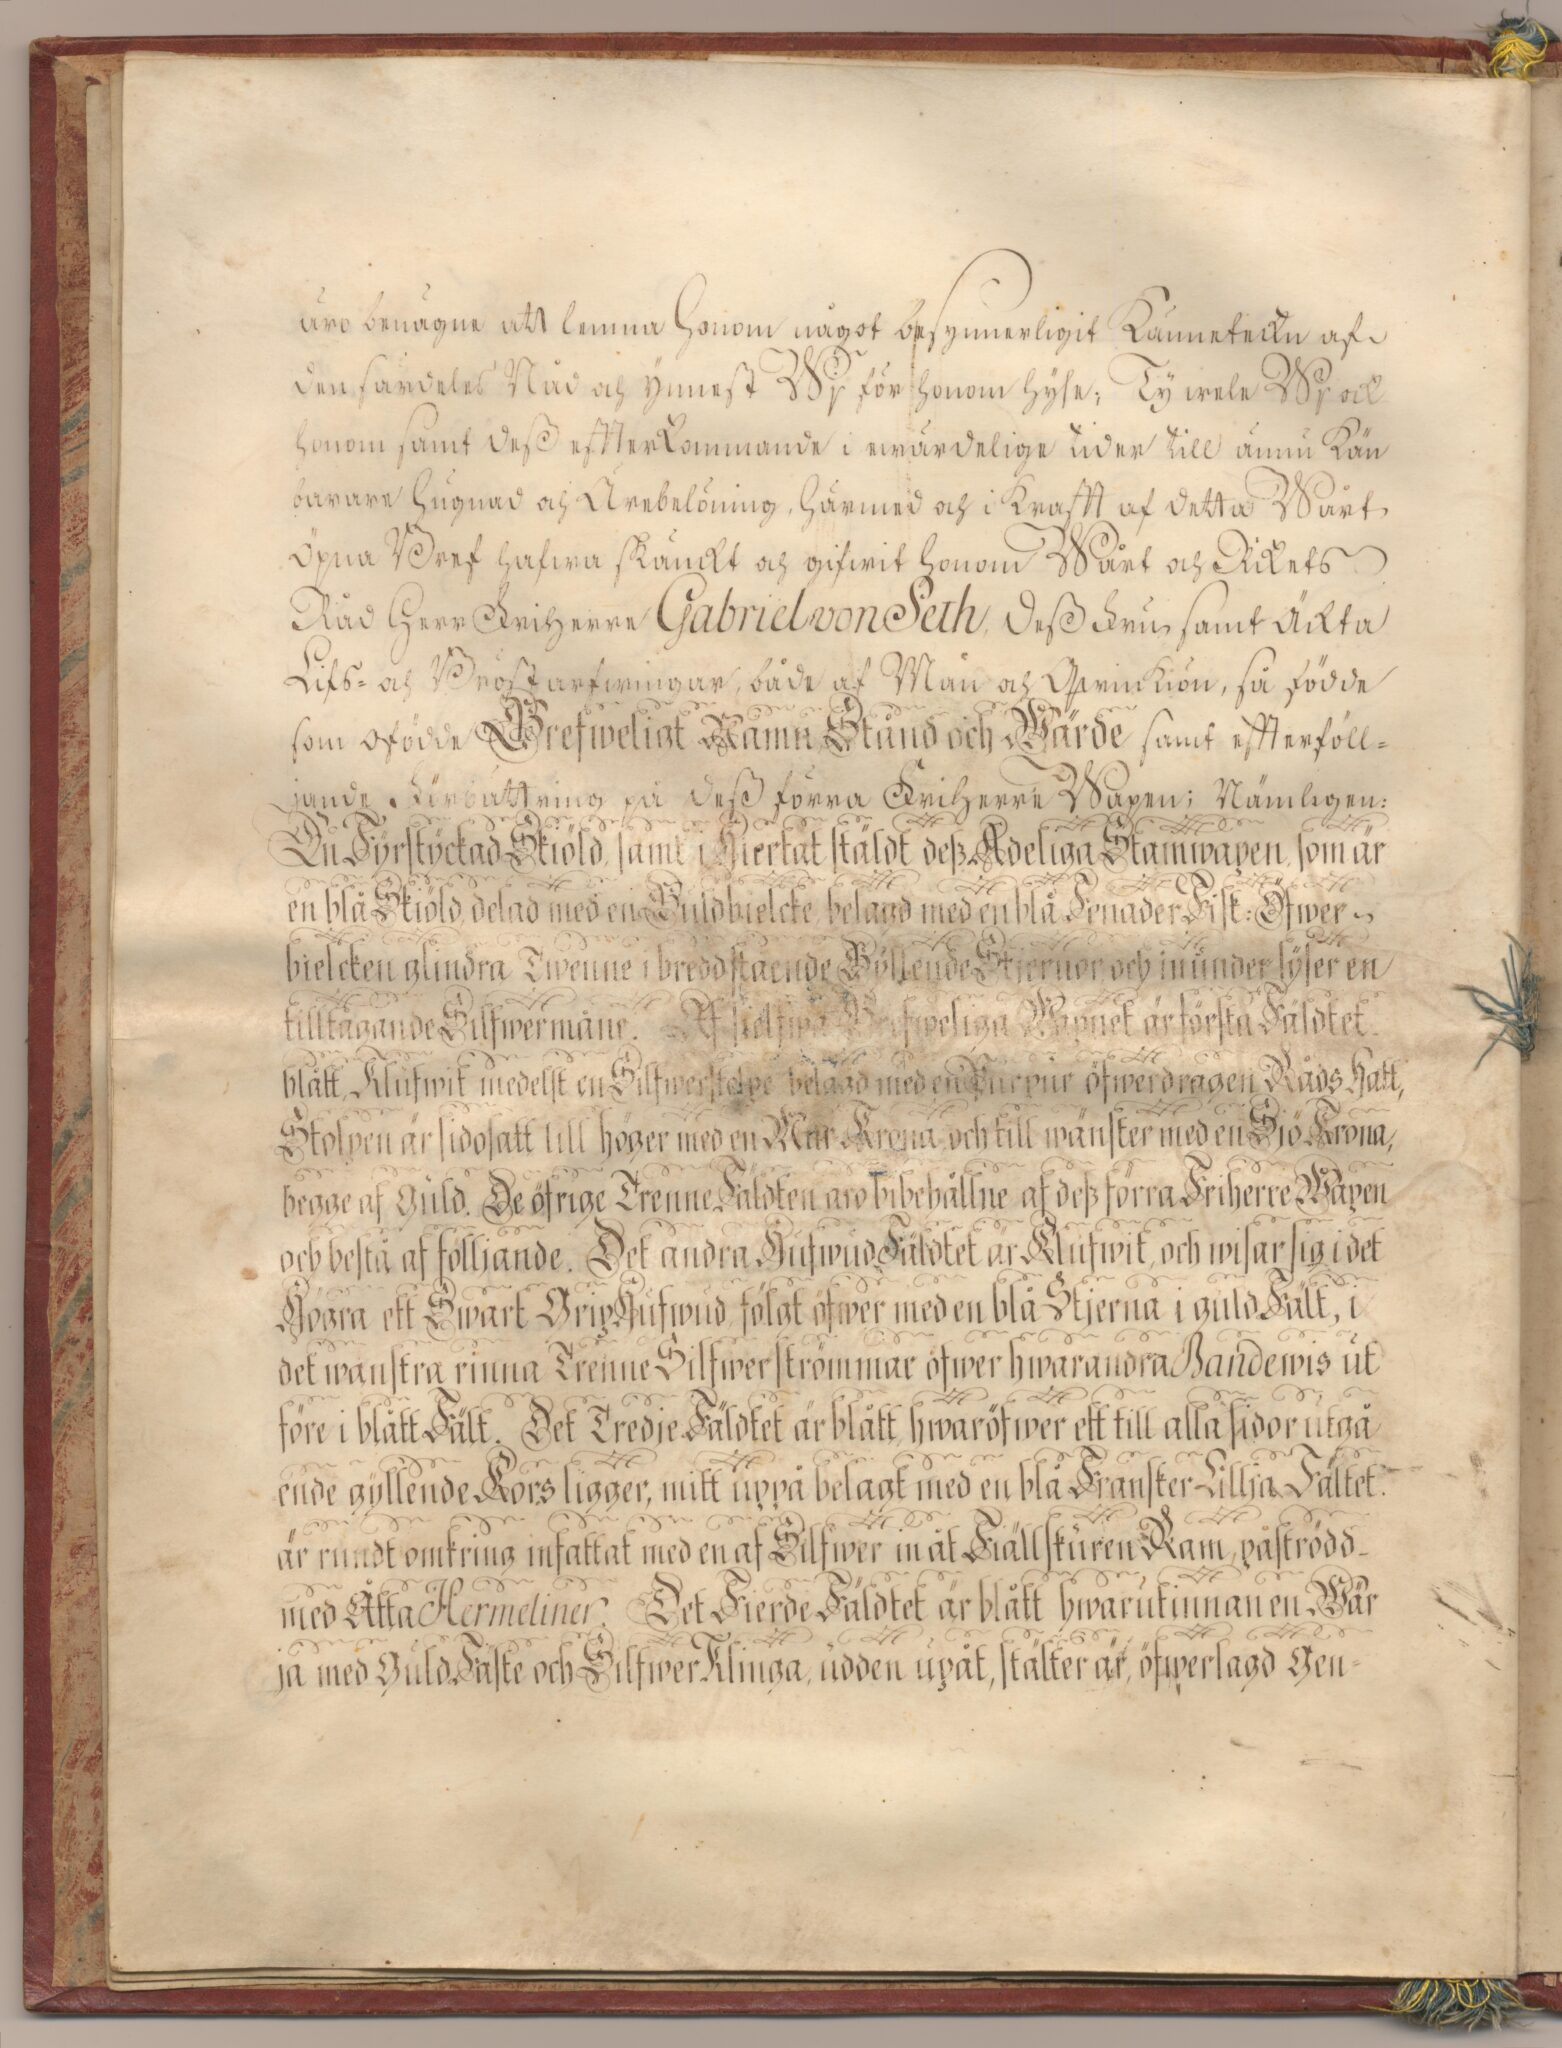 äro benägne att lemna honom något besynnerligit Kännetekn af
den särdeles Nåd och ynnest Wij för honom hyse; Ty wele Wij ock
honom samt deß effterkommande i ewärdelige tider till ännu Kän
barare hugnad och Ärebelöning, härmed och i Krafft af detta Wårt
Öpna Bref hafwa skänckt och gifwit honom Wårt och Rikets
Råd Herr FriHerre Gabriel von Seth, deß Fru, samt Äckta
Lifs- och Bröstarfwingar, både af Man och Qwinkiön, så födde
som ofödde Grefweligt Namn Stånd och Wärde samt effterföll-
jande Förbättring på deß förra FriHerre Wapen; Nämligen:
En Fyrstyckad Skiöld, samt i Hiertat stäldt deß Adeliga Stamwapen, som är
en blå Skiöld, delad med en Guldbielcke, belagd med en blå Fenader Fisk: Öfwer
bielcken glindra Twenne i bredd stående Gyllende Stjernor, och inunder lyser en
tilltagande Silfwermåne. Af sielfwa Grefweliga Wapnet är första Fäldtet
blått, Klufwit medelst en Silfwerstolpe belagd med en Purpur öfwerdragen Råds Hatt,
Stolpen är sidosatt till höger med en Mur-Krona, och till wänster med en Sjö-Krona,
begge af Guld. De öfrige Trenne Fäldten äro bibehållne af deß förra Friherre Wapen
och bestå af följande. Det andra Hufwud Fäldtet är Klufwit, och wisar sig i det
Högra ett Swart GripHufwud, fölgt öfwer med en blå Stjerna i guld Fält, i
det wänstra rinna Trenne Silfwerströmmar öfwer hwarandra Bandewis ut
före i blått Fält. Det Tredje Fäldtet är blått, hwaröfwer ett till alla sidor utgå
ende gyllende Kors ligger, mitt uppå belagt med en blå Fransker-Lillja. Fältet
är rundt omkring infattat med en af Silfwer in åt Fiällskuren Ram, påströdd
med Åtta Hermeliner. Det Fierde Fäldtet är blått, hwarutinnan en Wär
ja med Guld Fäste och Silfwer Klinga, udden upåt, stälter är, öfwerlagd Gen-